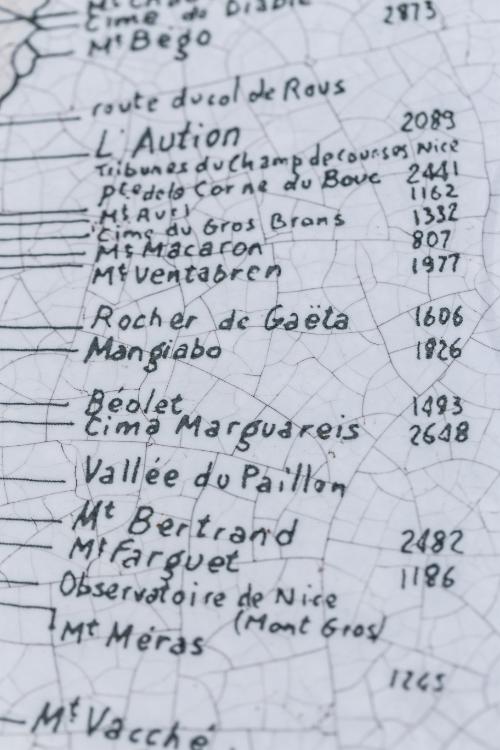 Cime du Diable 2873
Mt Bego
route du col de Raus
L'Aution 2089
Tribunes du Champ de courses Nice
Pte de la Corne du Bouc 2441
Mt Auri 1162
Cime du Gros Brans 1332
Mt Macaron 807
Mt Ventabren 1977
Rocher de Gaëta 1606
Mangiabo 1826
Béolet 1493
Cima Marguareis 2648
Vallée du Paillon
Mt Bertrand 2482
Mt Farguet 1186
Observatoire de Nice
(Mont Gros)
Mt Méras
1265
Mt Vacché